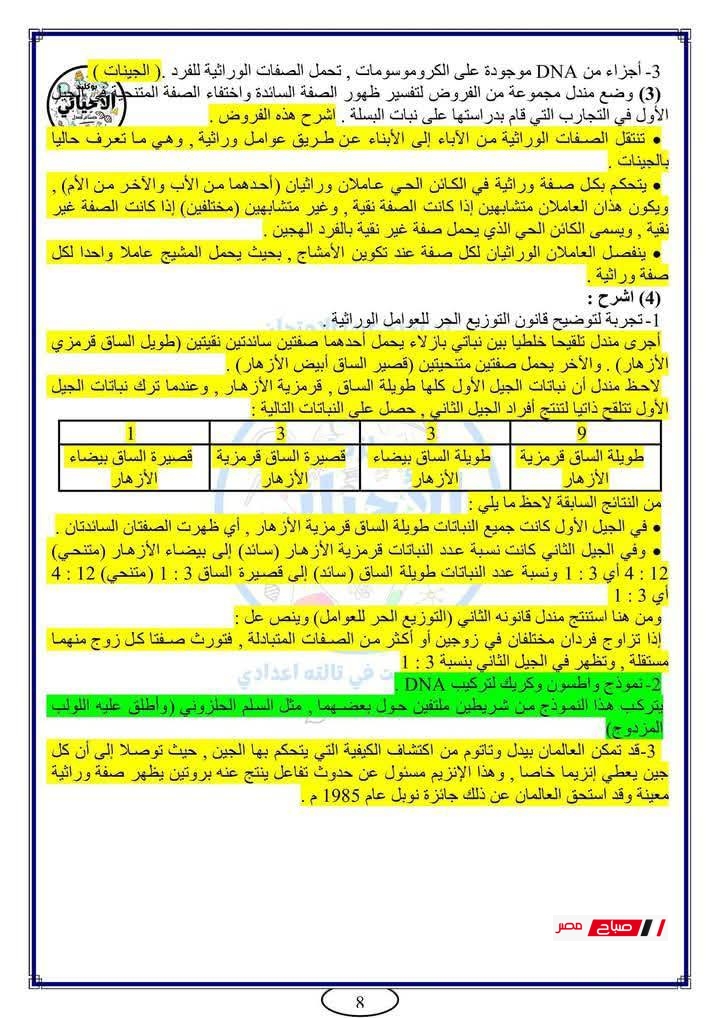 3- أجزاء من DNA موجودة على الكروموسومات , تحمل الصفات الوراثية للفرد .( الجينات ) .
(3) وضع مندل مجموعة من الفروض لتفسير ظهور الصفة السائدة واختفاء الصفة المتنحية في الجيل
الأول في التجارب التي قام بدراستها على نبات البسلة . اشرح هذه الفروض .
● تنتقل الصفات الوراثية من الأباء إلى الأبناء عن طريق عوامل وراثية , وهي ما تعرف حاليا
بالجينات .
● يتحكم بكل صفة وراثية في الكائن الحي عاملان وراثيان (أحدهما من الأب والآخر من الأم) ,
ويكون هذان العاملان متشابهين إذا كانت الصفة نقية , وغير متشابهين (مختلفين) إذا كانت الصفة غير
نقية , ويسمى الكائن الحي الذي يحمل صفة غير نقية بالفرد الهجين .
● ينفصل العاملان الوراثيان لكل صفة عند تكوين الأمشاج , بحيث يحمل المشيج عاملا واحدا لكل
صفة وراثية .
(4) اشرح :
1- تجربة لتوضيح قانون التوزيع الحر للعوامل الوراثية .
أجرى مندل تلقيحا خلطيا بين نباتي بازلاء يحمل أحدهما صفتين سائدتين نقيتين (طويل الساق قرمزي
الأزهار) . والآخر يحمل صفتين متنحيتين (قصير الساق أبيض الأزهار) .
لاحظ مندل أن نباتات الجيل الأول كلها طويلة الساق , قرمزية الأزهار , وعندما ترك نباتات الجيل
الأول تتلقح ذاتيا لتنتج أفراد الجيل الثاني , حصل على النباتات التالية :
9 3 3 1
طويلة الساق قرمزية الأزهار طويلة الساق بيضاء الأزهار قصيرة الساق قرمزية الأزهار قصيرة الساق بيضاء الأزهار
من النتائج السابقة لاحظ ما يلي :
● في الجيل الأول كانت جميع النباتات طويلة الساق قرمزية الأزهار , أي ظهرت الصفتان السائدتان .
● وفي الجيل الثاني كانت نسبة عدد النباتات قرمزية الأزهار (سائد) إلى بيضاء الأزهار (متنحي)
12 : 4 أي 3 : 1 ونسبة عدد النباتات طويلة الساق (سائد) إلى قصيرة الساق 3 : 1 (متنحي) 12 : 4
أي 3 : 1
ومن هنا استنتج مندل قانونه الثاني (التوزيع الحر للعوامل) وينص عل :
إذا تزاوج فردان مختلفان في زوجين أو أكثر من الصفات المتبادلة , فتورث صفتا كل زوج منهما
مستقلة , وتظهر في الجيل الثاني بنسبة 3 : 1
2- نموذج واطسون وكريك لتركيب DNA .
يتركب هذا النموذج من شريطين ملتفين حول بعضهما , مثل السلم الحلزوني (وأطلق عليه اللولب
المزدوج)
3-قد تمكن العالمان بيدل وتاتوم من اكتشاف الكيفية التي يتحكم بها الجين , حيث توصلا إلى أن كل
جين يعطي إنزيما خاصا , وهذا الإنزيم مسئول عن حدوث تفاعل ينتج عنه بروتين يظهر صفة وراثية
معينة وقد استحق العالمان عن ذلك جائزة نوبل عام 1985 م .
صباح مصر
8